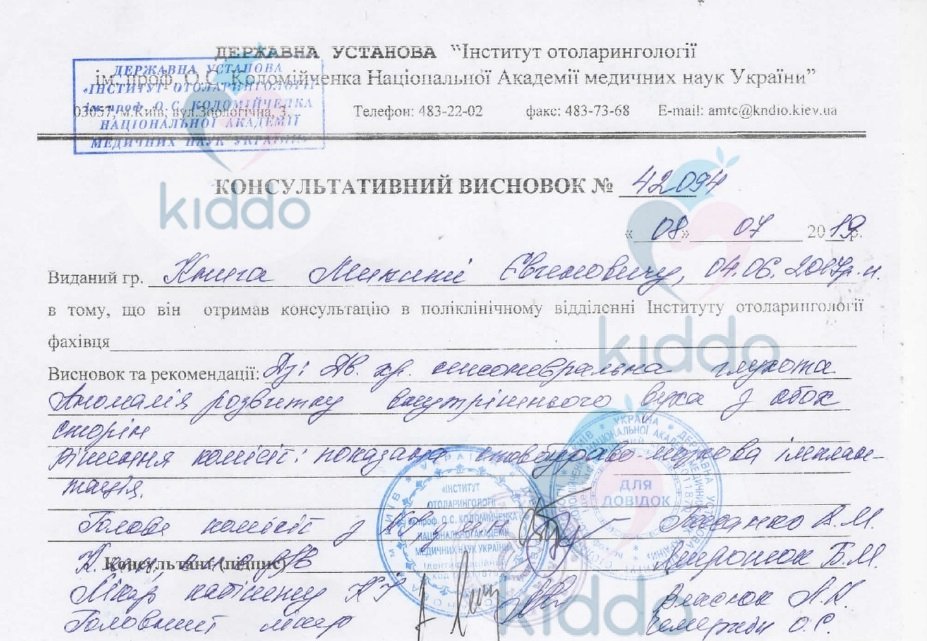 ДЕРЖАВНА УСТАНОВА “Інститут отоларингології
ім. проф. О.С. Коломійченка Національної Академії медичних наук України”
ДЕРЖАВНА УСТАНОВА
«ІНСТИТУТ ОТОЛАРИНГОЛОГІЇ
ім. проф. О.С. КОЛОМІЙЧЕНКА
НАЦІОНАЛЬНОЇ АКАДЕМІЇ
МЕДИЧНИХ НАУК УКРАЇНИ»
03057, м.Київ, вул.Зоологічна, 3, Телефон: 483-22-02 факс: 483-73-68 E-mail: amtc@kndio.kiev.ua
КОНСУЛЬТАТИВНИЙ ВИСНОВОК № 42094
kiddo
« 08 » 07 2019р.
Виданий гр. Євгеновичу, 04.06.2017р.н.
в тому, що він отримав консультацію в поліклінічному відділенні Інституту отоларингології
kiddo
фахівця
Висновок та рекомендації: Дз: Дв. хр. сенсоневральна глухота
Аномалія розвитку внутрішнього вуха з обох
сторін
Рішення комісії: показана стовбурово-мозкова імплан-
тація.
«ІНСТИТУТ
ОТОЛАРИНГОЛОГІЇ
ім. проф. О.С. КОЛОМІЙЧЕНКА
НАЦІОНАЛЬНОЇ АКАДЕМІЇ
МЕДИЧНИХ НАУК УКРАЇНИ»
УКРАЇНА
ДЛЯ
ДОВІДОК
Голова комісії з А.М.
Консультант (підпис) Б.М.
Лікар кабінету
Головний лікар О.С.
kiddo